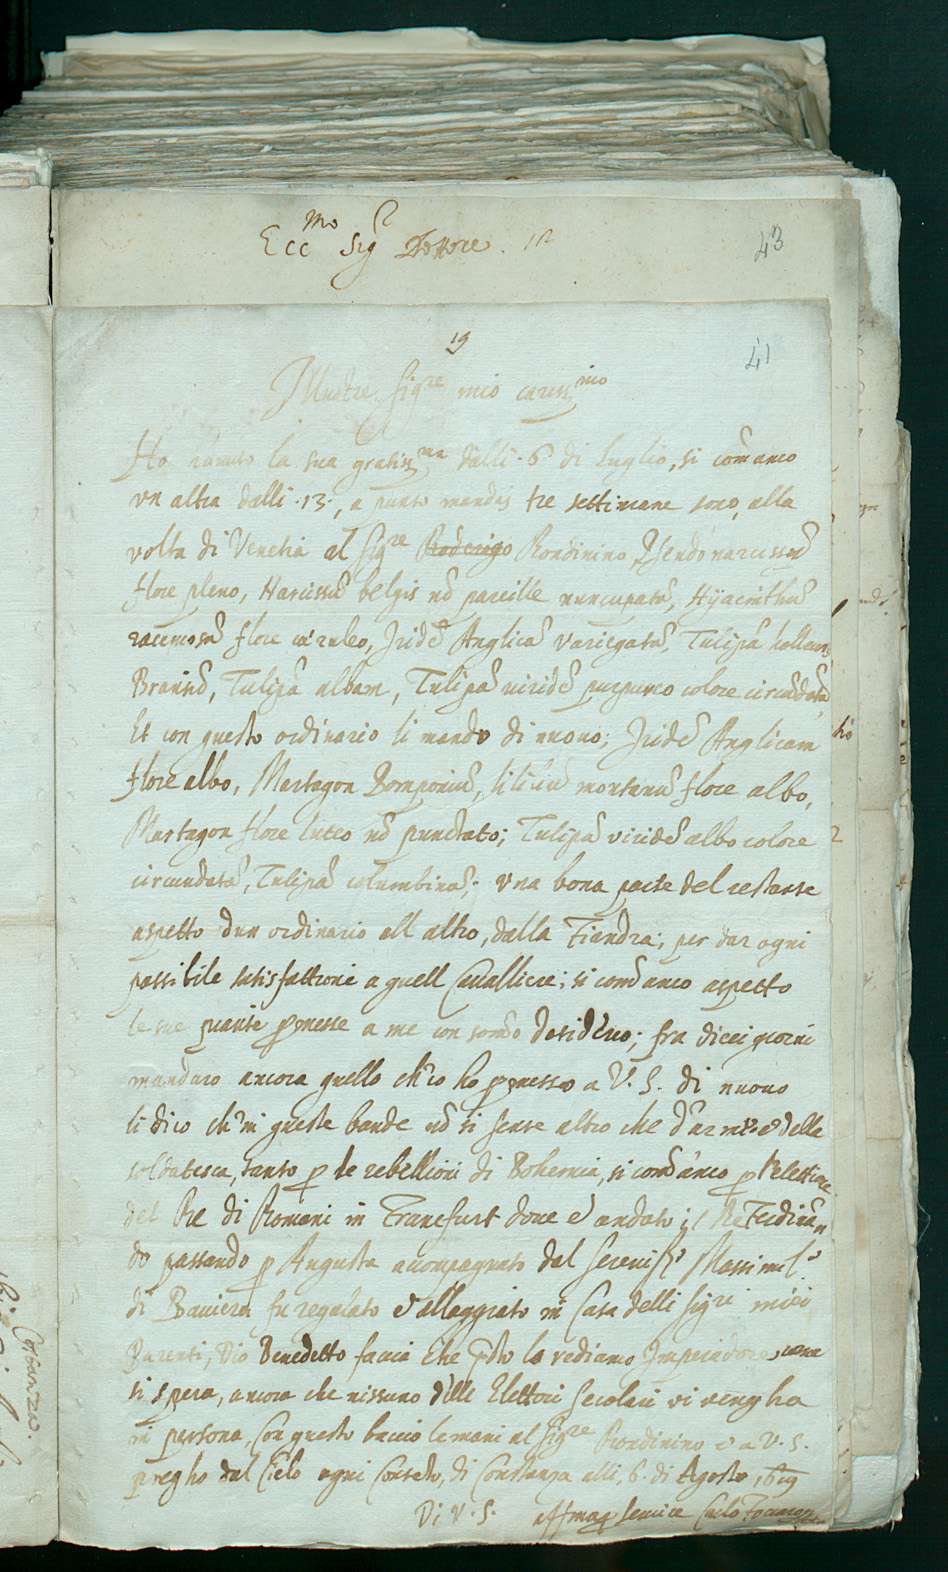 Ecc.mo Sig.r Dottore. 12
43
19
41
Illustre Sig.re mio cariss.mo
Ho hauuto la sua gratiss.ma delli .6 di Luglio, si com̃ anco
vn altra delli .13., a punto mandai tre settimane sono, alla
volta di Venetia al Sig.re Roderigo Rondinino Psendonarcissũ
flore pleno, Narcissũ belgis nõ pareille nuncupatũ, Hÿacinthũ
racemosũ flore cæruleo, Iridẽ Anglicã variegatã, Tulipã
Tulipã albam, Tulipã uiridẽ purpureo colore circũdatã
Et con questo ordinario li mando di nuouo; Iridẽ Anglicam
flore albo, Martagon Pomponiũ, liliũ montanũ flore albo,
Martagon flore luteo nõ punctato; Tulipã viridẽ albo colore
circundatã, Tulipã columbinã; vna bona parte del restante
aspetto dun ordinario all altro, dalla Fiandra; per dar ogni
possibile satisfattione a quell Caualliere; si com̃ anco aspetto
le sue piante p̱messe a me con som̃o desiderio; fra dieci giorni
mandaro ancora quello ch'io ho p̱messo a V. S. di nuouo
li dico ch' in queste bande nõ si sente altro che d'arme e della
soldatesca, tanto p̱ le rebellioni di Bohemia, si com̃ anco p̱ l'elettione
del Re di Romani in Francfurt doue è andato il Re Ferdinan
do passando p̱ Augusta accompagnato dal Sereniss.o Massimil.o
di Bauiera fu regalato e allaggiato in Casa delli Sig.ri miei
Parenti, Dio Benedetto facia che p̱sto lo vediamo Imperadore, come
si spera, ancora che nissuno delli Elettori Secolari vi vengha
in persona, Con questo baccio le mani al Sig.re Rondinino e a V. S.
pregho dal Cielo ogni Contento, di Constanza alli .6. di Agosto 1619
Di V. S. aff.mo per seruire Carlo
Constanza.